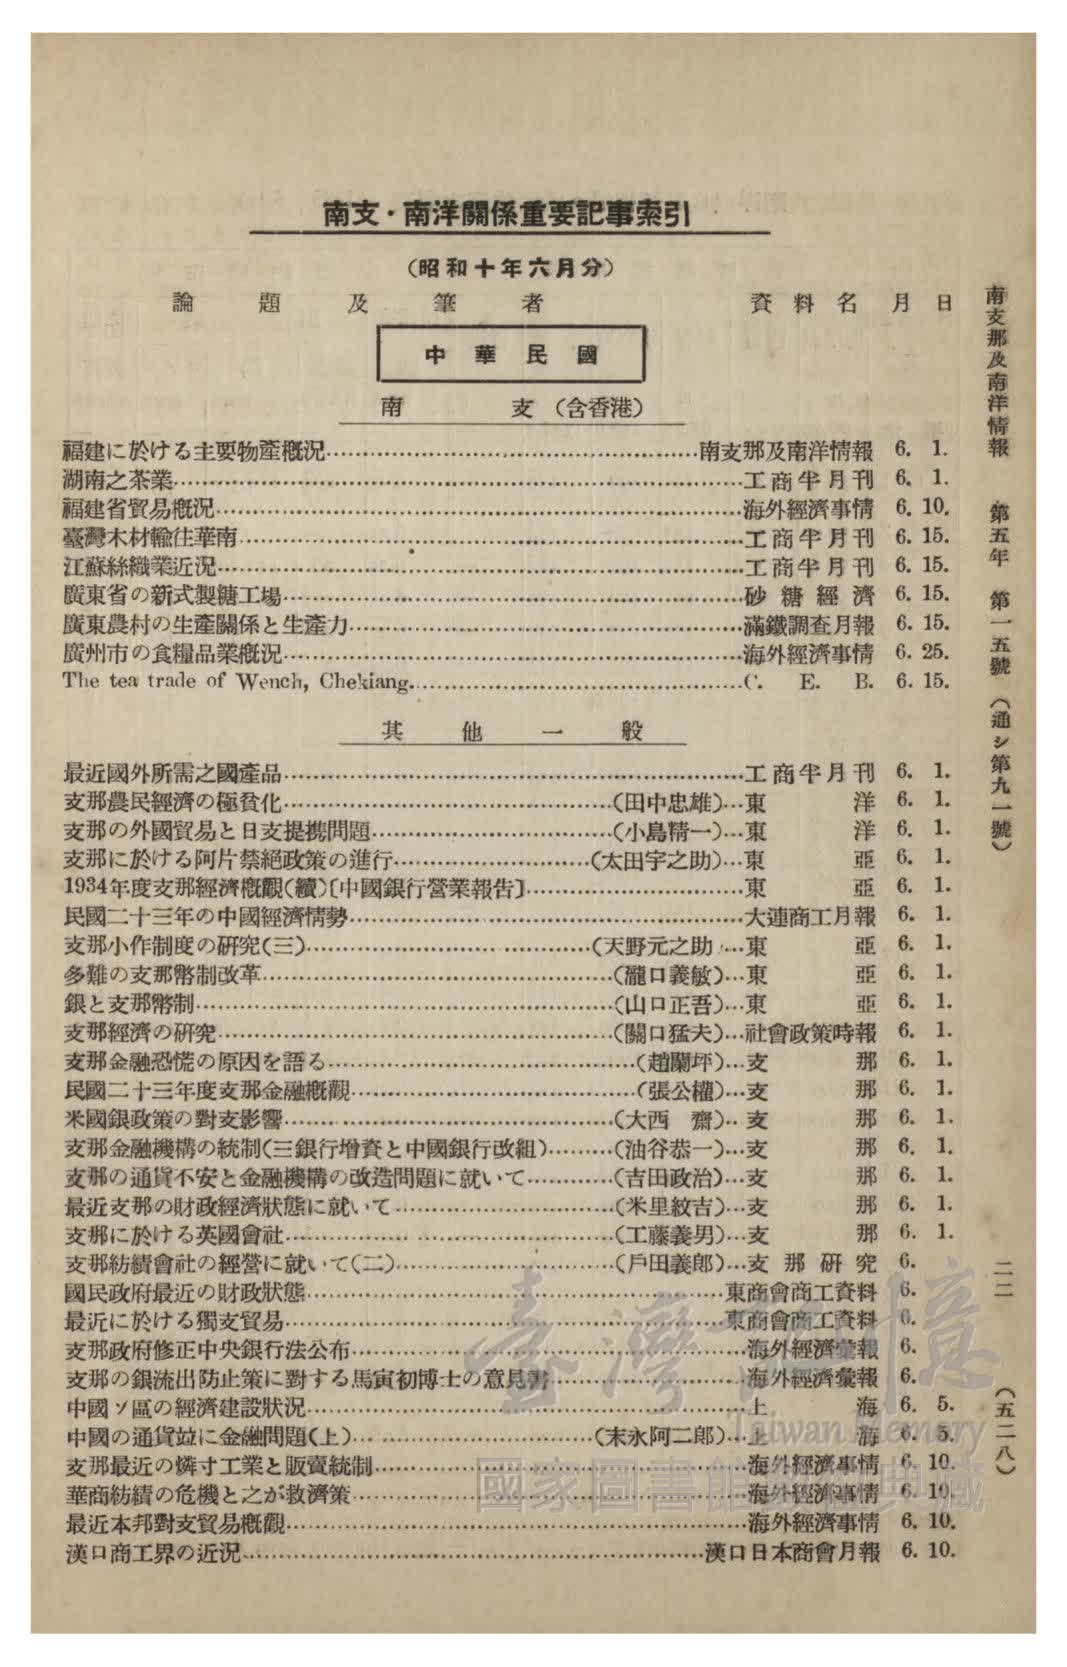 南支・南洋關係重要記事索引
（昭和十年六月分）
論題及筆者 資料名 月日
中華民國
南支（含香港）
福建に於ける主要物產槪況……南支那及南洋情報 6. 1.
湖南之茶業……工商半月刊 6. 1.
福建省貿易槪況……海外經濟事情 6. 10.
臺灣木材輸往華南……工商半月刊 6. 15.
江蘇絲織業近況……工商半月刊 6. 15.
廣東省の新式製糖工場……砂糖經濟 6. 15.
廣東農村の生產關係と生產力……滿鐵調査月報 6. 15.
廣州市の食糧品業槪況……海外經濟事情 6. 25.
The tea trade of Wench, Chekiang.……C. E. B. 6. 15.
其他一般
最近國外所需之國產品……工商半月刊 6. 1.
支那農民經濟の極貧化……（田中忠雄）…東洋 6. 1.
支那の外國貿易と日支提携問題……（小島精一）…東洋 6. 1.
支那に於ける阿片禁絕政策の進行……（太田宇之助）…東亞 6. 1.
1934年度支那經濟槪觀（續）〔中國銀行營業報告〕……東亞 6. 1.
民國二十三年の中國經濟情勢……大連商工月報 6. 1.
支那小作制度の硏究（三）……（天野元之助）…東亞 6. 1.
多難の支那幣制改革……（瀧口義敏）…東亞 6. 1.
銀と支那幣制……（山口正吾）…東亞 6. 1.
支那經濟の硏究……（關口猛夫）…社會政策時報 6. 1.
支那金融恐慌の原因を語る……（趙蘭坪）…支那 6. 1.
民國二十三年度支那金融槪觀……（張公權）…支那 6. 1.
米國銀政策の對支影響……（大西　齋）…支那 6. 1.
支那金融機構の統制（三銀行增資と中國銀行改組）……（油谷恭一）…支那 6. 1.
支那の通貨不安と金融機構の改造問題に就いて……（吉田政治）…支那 6. 1.
最近支那の財政經濟狀態に就いて……（米里紋吉）…支那 6. 1.
支那に於ける英國會社……（工藤義男）…支那 6. 1.
支那紡績會社の經營に就いて（二）……（戶田義郎）…支那硏究 6.
國民政府最近の財政狀態……東商會商工資料 6.
最近に於ける獨支貿易……東商會商工資料 6.
支那政府修正中央銀行法公布……海外經濟彙報 6.
支那の銀流出防止策に對する馬寅初博士の意見書……海外經濟彙報 6.
中國ソ區の經濟建設狀況……上海 6. 5.
中國の通貨竝に金融問題（上）……（末永阿二郎）…上海 6. 5.
支那最近の燐寸工業と販賣統制……海外經濟事情 6. 10.
華商紡績の危機と之が救濟策……海外經濟事情 6. 10.
最近本邦對支貿易槪觀……海外經濟事情 6. 10.
漢口商工界の近況……漢口日本商會月報 6. 10.
南支那及南洋情報　第五年　第一五號（通シ第九一號）
二二
（五二八）
臺灣記憶
Taiwan Memory
國家圖書館數位典藏